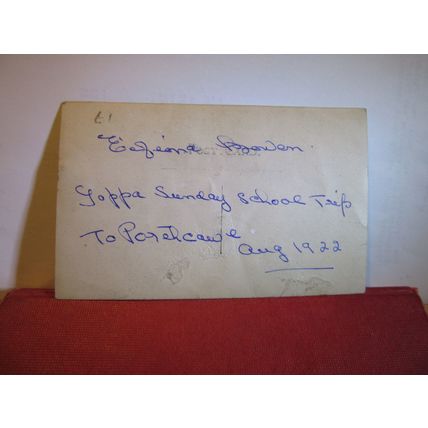 £1
Eifiona Bowen.
Joppa Sunday School Trip
To Porthcawl
Aug 1922